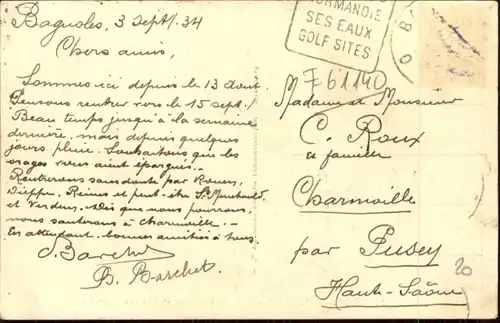 Bagnoles, 3 Sept. 34
Chers amis,
Sommes ici depuis le 13 Aout.
Pensons rentrer vers le 15 sept.
Beau temps jusqu'à la semaine
dernière, mais depuis quelques
jours pluie. Souhaitons que les
orages vous aient épargnés.
Rentrerons sans doute par Rouen,
Dieppe, Reims et peut-être Ste Menehould
et Verdun. Dès que nous pourrons,
nous sauterons à Charmoille.
En attendant, bonnes amitiés à tous.
Barchet
B. Barchet
NORMANDIE
SES EAUX
GOLF SITES
76 1140
Madame et Monsieur
C. Roux
et famille
Charmoille
par Pusey
Haute-Saône
20